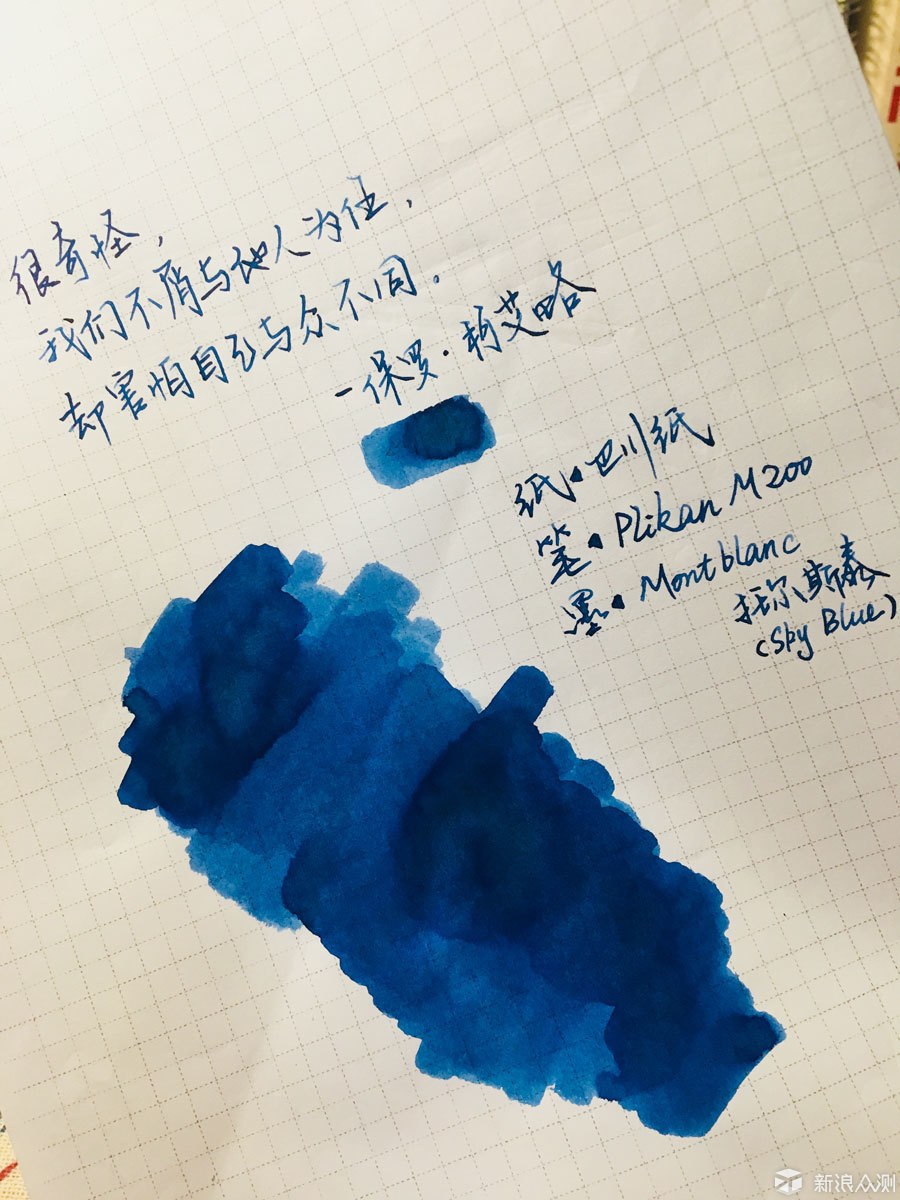 很奇怪，
我们不屑与他人为伍，
却害怕自己与众不同。
—保罗·柯艾略
纸·巴川纸
笔·Plikan M200
墨·Montblanc
托尔斯泰
(Sky Blue)
新浪众测